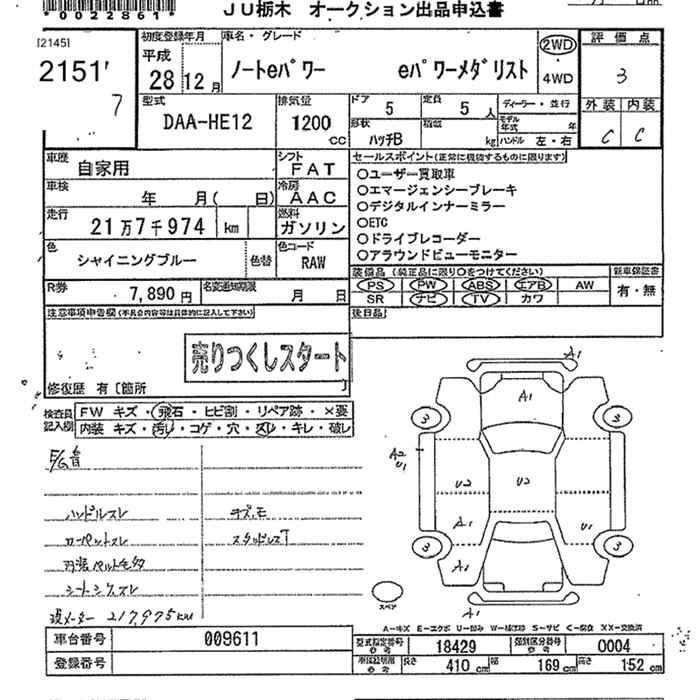 *0022861*
JU栃木 オークション出品申込書
[2145]
2151
7
初度登録年月
平成
28 12月
車名・グレード
ノートeパワー eパワーメダリスト
2WD
・
4WD
評価点
3
外装 内装
C C
型式
DAA-HE12
排気量
1200
CC
ドア
5
定員
5 人
形状
ハッチB
積載
kg
ディーラー・並行
モデル年式 年
ハンドル 左・右
車歴
自家用
シフト
FAT
車検
年 月( 日)
冷房
AAC
走行
21万7千974 km
燃料
ガソリン
色
シャイニングブルー
色替
色コード
RAW
R券
7,890 円
名変通知期限
月 日
セールスポイント(正常に機能するものに限ります)
○ユーザー買取車
○エマージェンシーブレーキ
○デジタルインナーミラー
○ETC
○ドライブレコーダー
○アラウンドビューモニター
装備品(純正品に限り○をつけてください)
新車保証書
PS PW ABS エアB AW
有・無
SR ナビ TV カワ
後日品
注意事項申告欄(不具合内容等は具体的に記入して下さい)
売りつくしスタート
修復歴 有〔箇所 〕
検査員記入欄
FW キズ・飛石・ヒビ割・リペア跡・×要
内装 キズ・汚レ・コゲ・穴・スレ・キレ・破レ
E/G音
ハンドルスレ
チズモ
カーペットスレ
スタッドレスT
内張ベルトモタ
シートシワスレ
現メーター 217,975km
A1
A1
3
3
A2
U1
U2
U2
A1
U1
3
3
A1
A1
スペア
A-キズ E-エクボ U-凹み W-補修跡 S-サビ C-腐食 XX-交換済
車台番号
009611
登録番号
型式指定番号
参考
18429
類別区分番号
参考
0004
車検証明細
参考
長さ
410 cm
幅
169 cm
高さ
152 cm